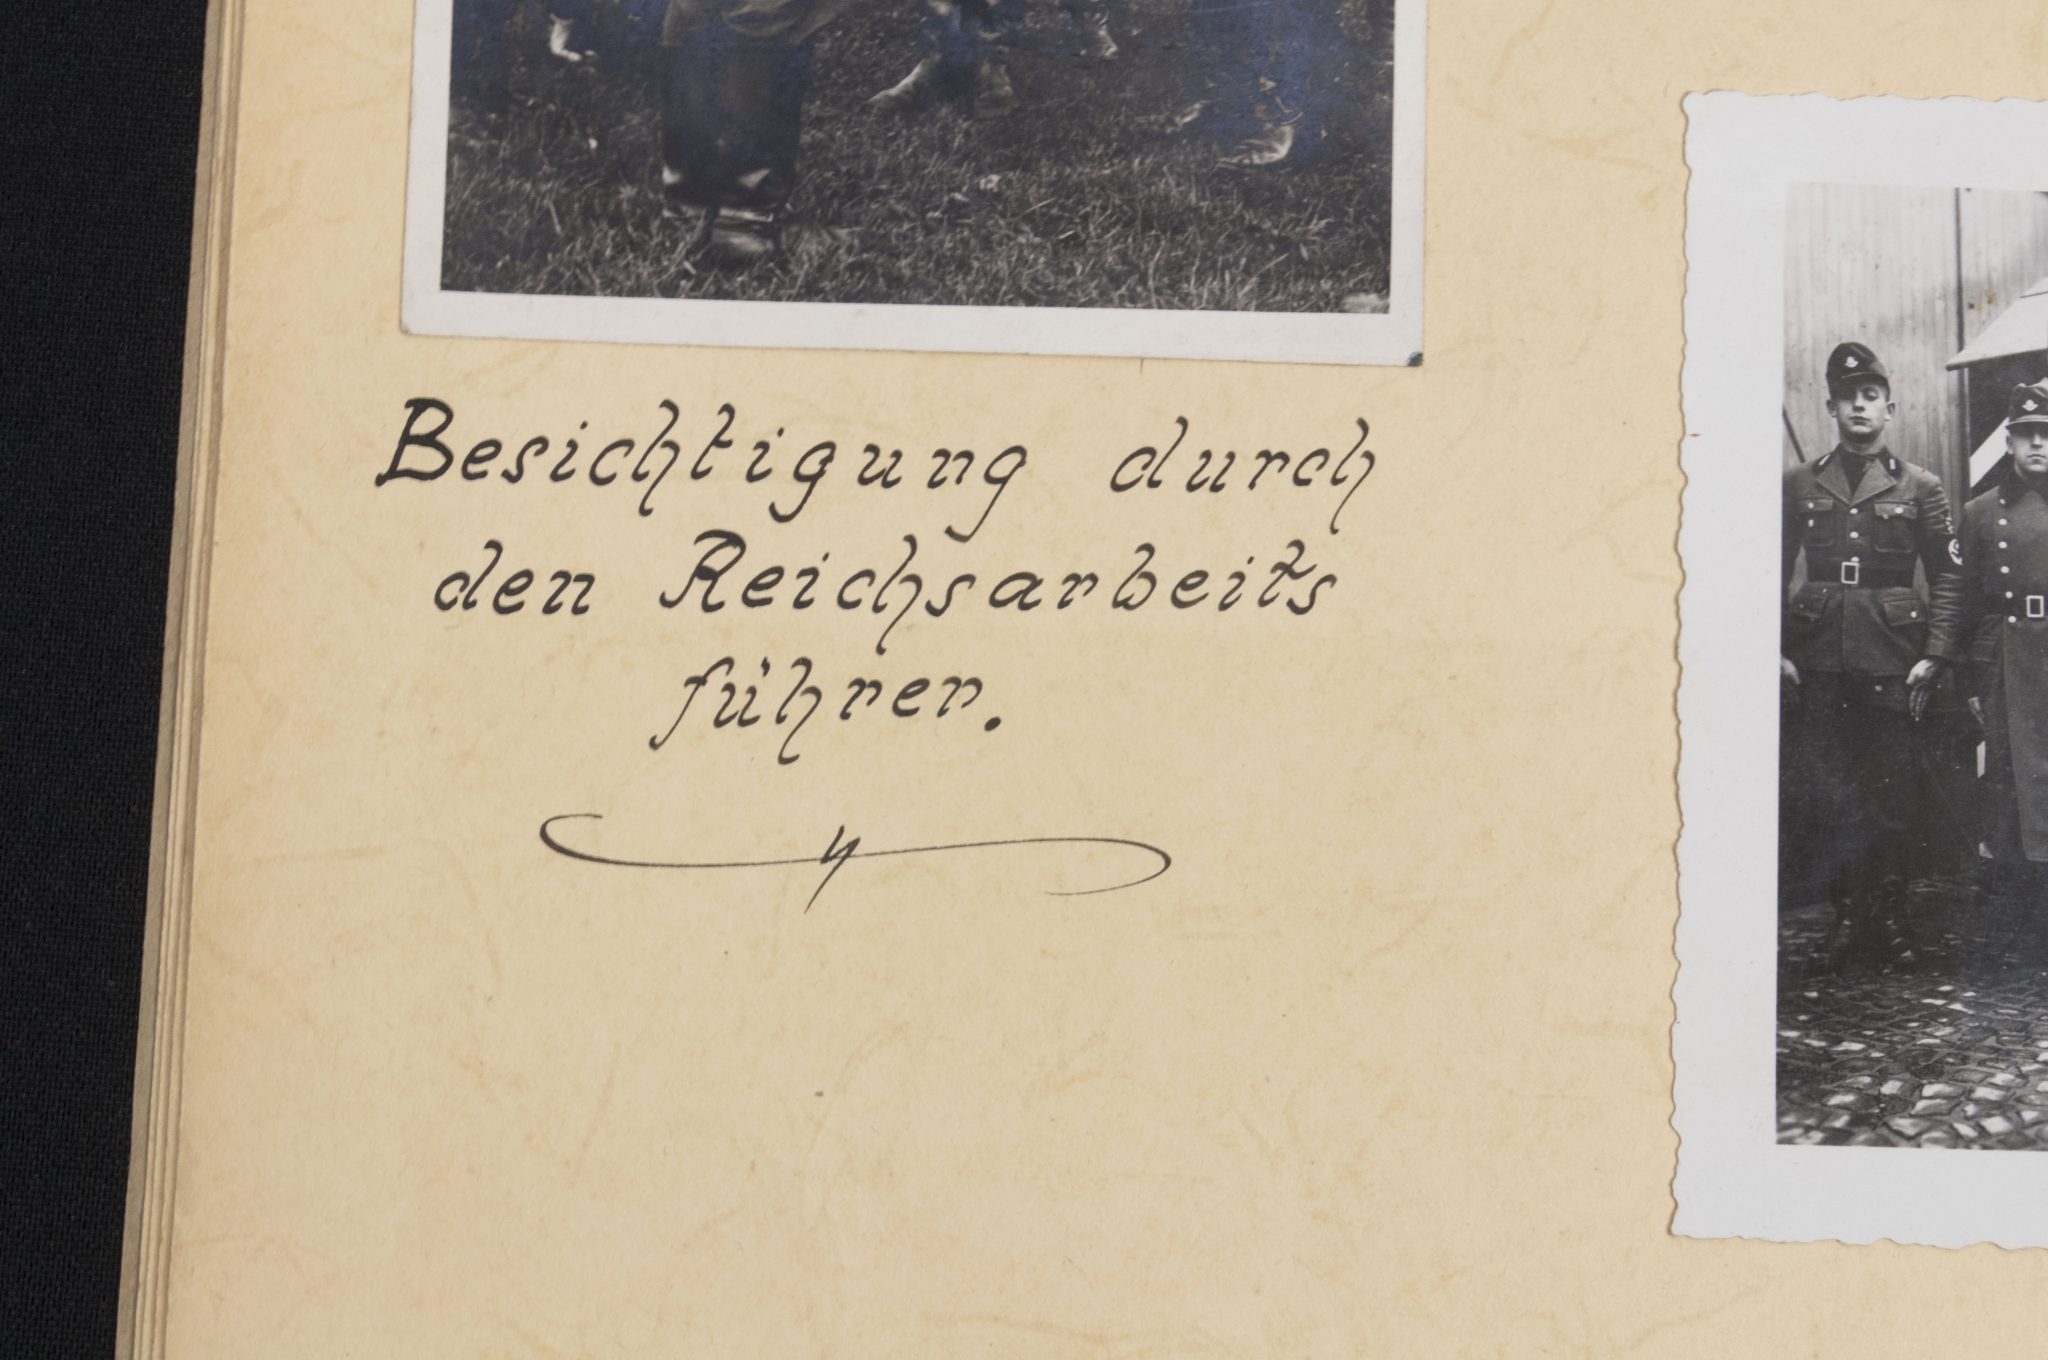 Besichtigung durch
den Reichsarbeits
führer.